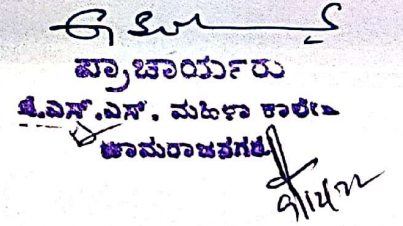 ಪ್ರಾಚಾರ್ಯರು
ಜೆ.ಎಸ್.ಎಸ್. ಮಹಿಳಾ ಕಾಲೇಜು
ಚಾಮರಾಜನಗರ